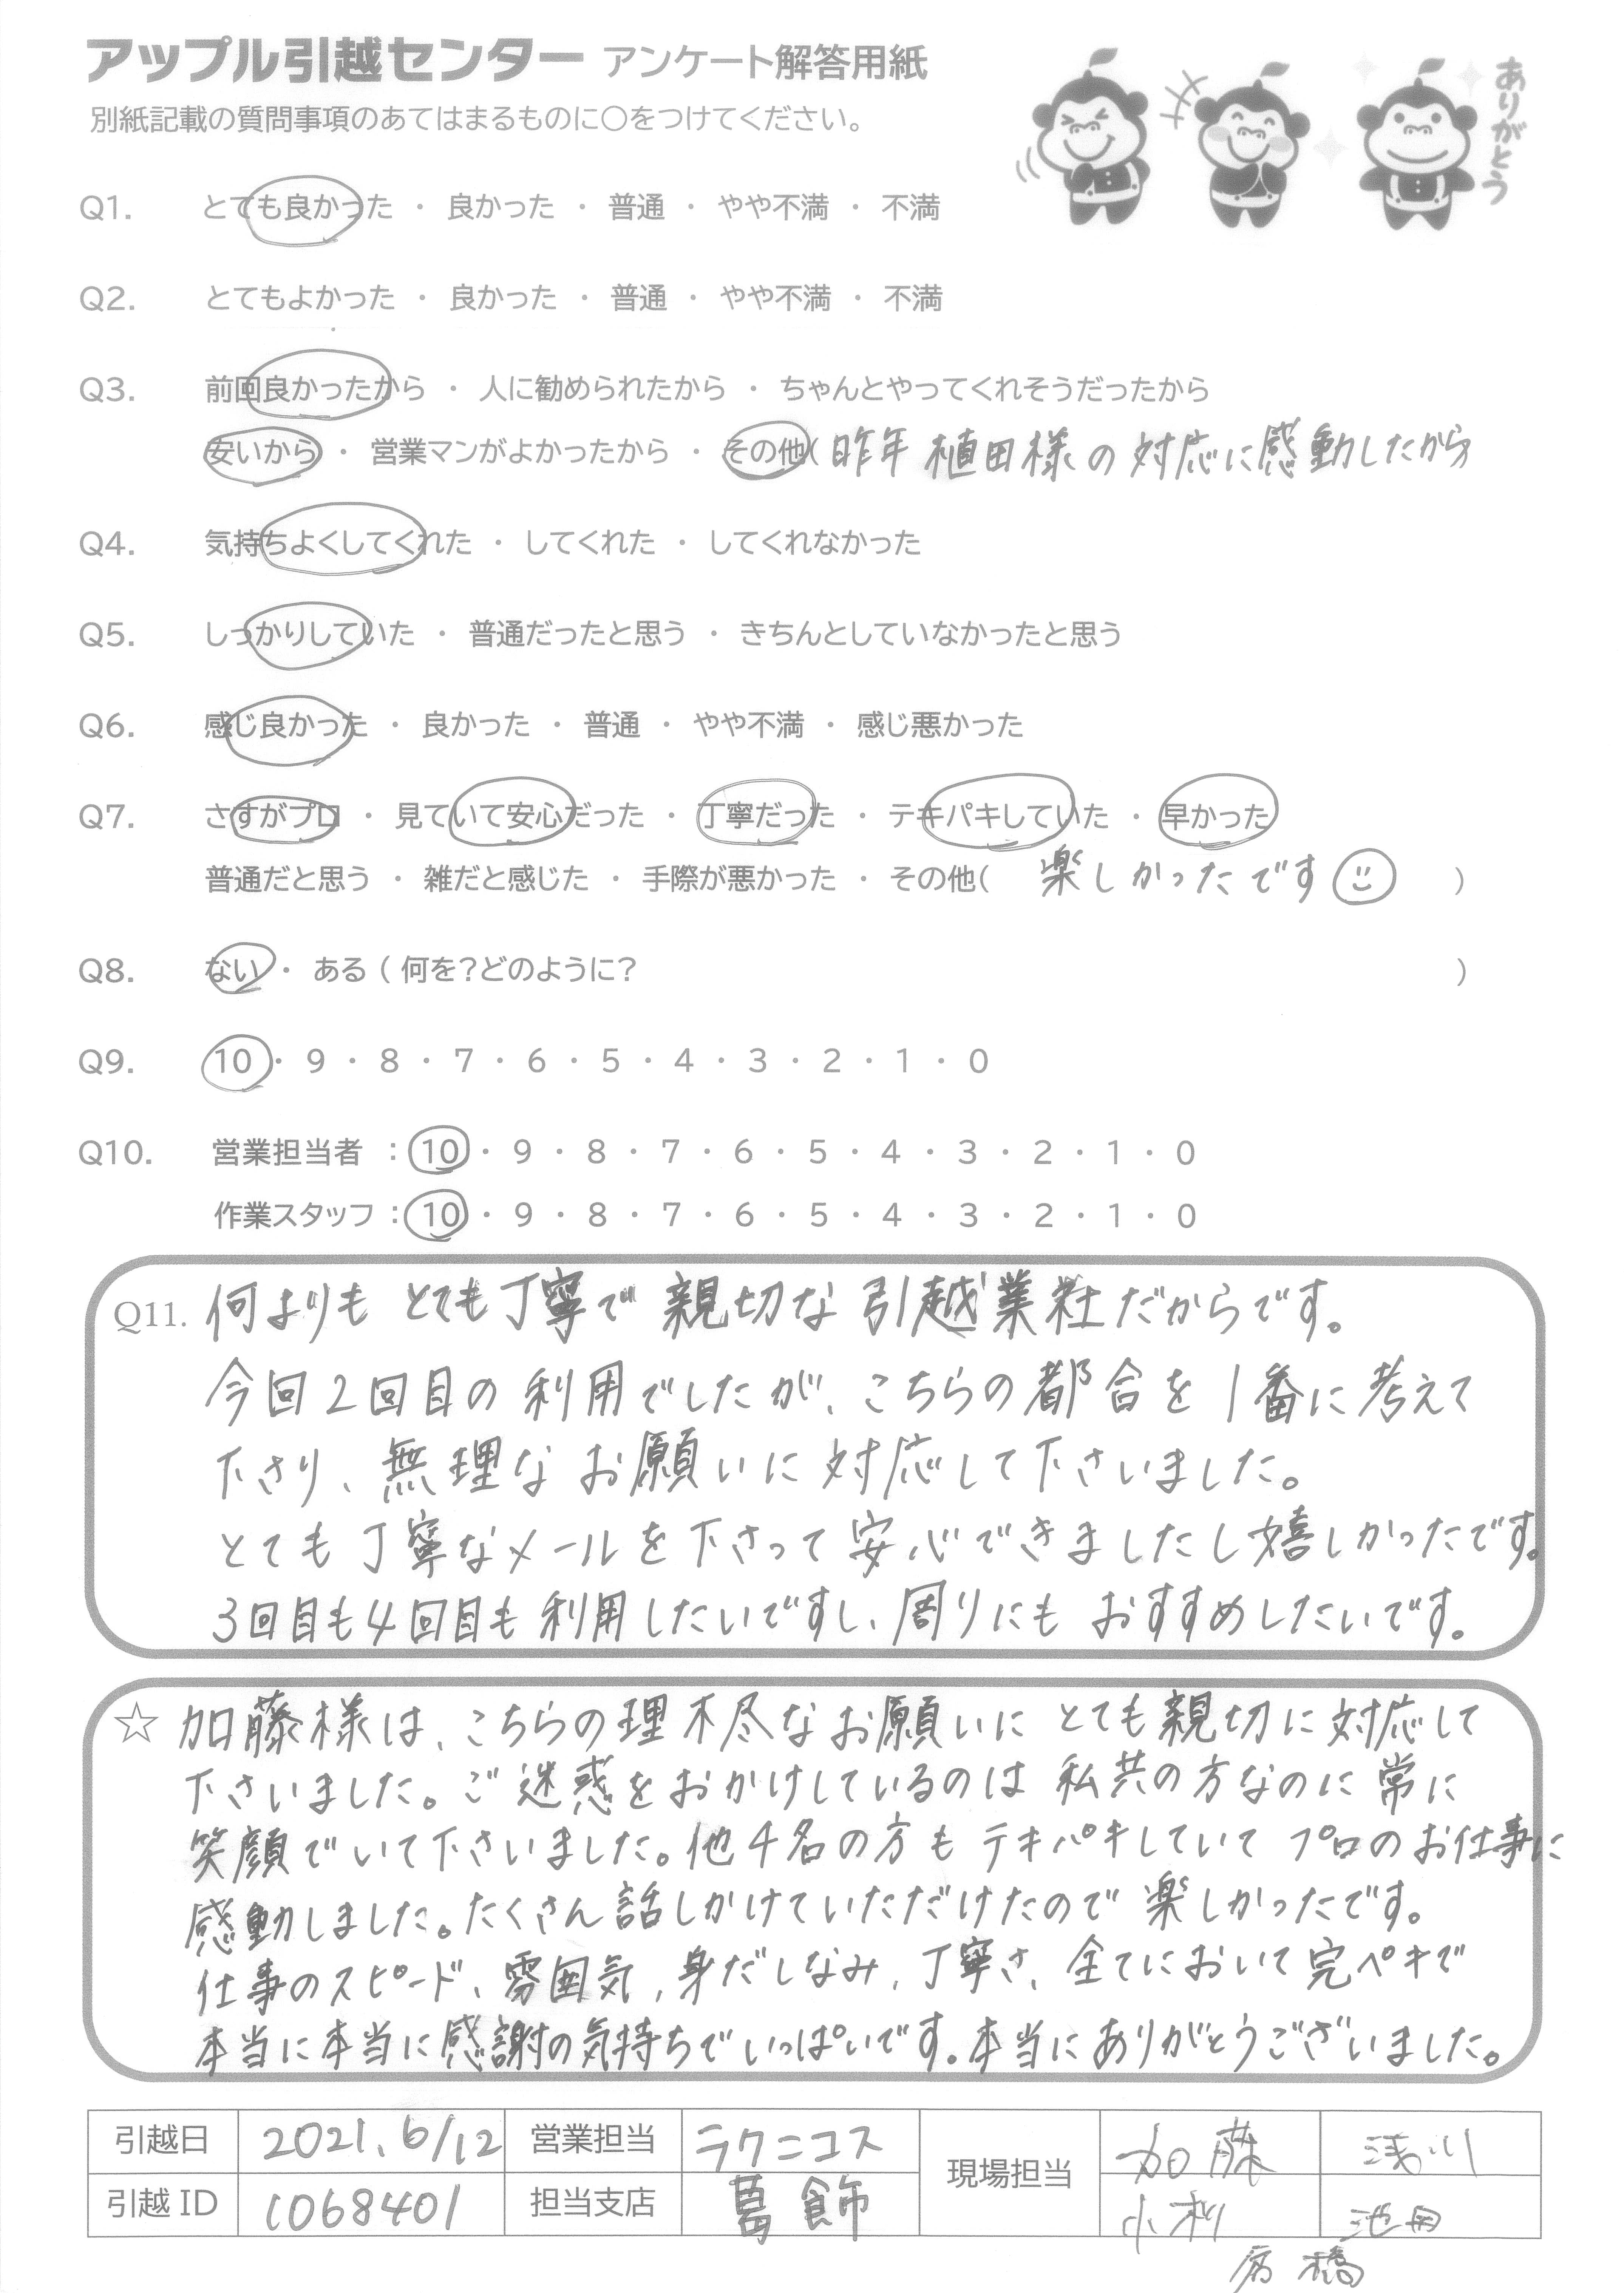 アップル引越センター アンケート解答用紙
別紙記載の質問事項のあてはまるものに○をつけてください。
ありがとう
Q1. とても良かった ・ 良かった ・ 普通 ・ やや不満 ・ 不満
Q2. とてもよかった ・ 良かった ・ 普通 ・ やや不満 ・ 不満
Q3. 前回良かったから ・ 人に勧められたから ・ ちゃんとやってくれそうだったから
安いから ・ 営業マンがよかったから ・ その他( 昨年 植田様の対応に感動したから
Q4. 気持ちよくしてくれた ・ してくれた ・ してくれなかった
Q5. しっかりしていた ・ 普通だったと思う ・ きちんとしていなかったと思う
Q6. 感じ良かった ・ 良かった ・ 普通 ・ やや不満 ・ 感じ悪かった
Q7. さすがプロ ・ 見ていて安心だった ・ 丁寧だった ・ テキパキしていた ・ 早かった
普通だと思う ・ 雑だと感じた ・ 手際が悪かった ・ その他( 楽しかったです )
Q8. ない ・ ある ( 何を?どのように? )
Q9. 10 ・ 9 ・ 8 ・ 7 ・ 6 ・ 5 ・ 4 ・ 3 ・ 2 ・ 1 ・ 0
Q10. 営業担当者 : 10 ・ 9 ・ 8 ・ 7 ・ 6 ・ 5 ・ 4 ・ 3 ・ 2 ・ 1 ・ 0
作業スタッフ : 10 ・ 9 ・ 8 ・ 7 ・ 6 ・ 5 ・ 4 ・ 3 ・ 2 ・ 1 ・ 0
Q11. 何よりも とても丁寧で 親切な 引越業社だからです。
今回2回目の利用でしたが、こちらの都合を1番に考えて
下さり、無理なお願いに対応して下さいました。
とても丁寧なメールを下さって安心できましたし嬉しかったです。
3回目も4回目も利用したいですし、周りにもおすすめしたいです。
☆ 加藤様は、こちらの理不尽なお願いにとても親切に対応して
下さいました。ご迷惑をおかけしているのは私共の方なのに常に
笑顔でいて下さいました。他4名の方もテキパキしていてプロのお仕事に
感動しました。たくさん話しかけていただけたので楽しかったです。
仕事のスピード、雰囲気、身だしなみ、丁寧さ、全てにおいて完ペキで
本当に本当に感謝の気持ちでいっぱいです。本当にありがとうございました。
引越日 2021.6/12 営業担当 ラクニコス 現場担当 加藤 浅川
引越ID 1068401 担当支店 葛飾 小利 池田
高橋